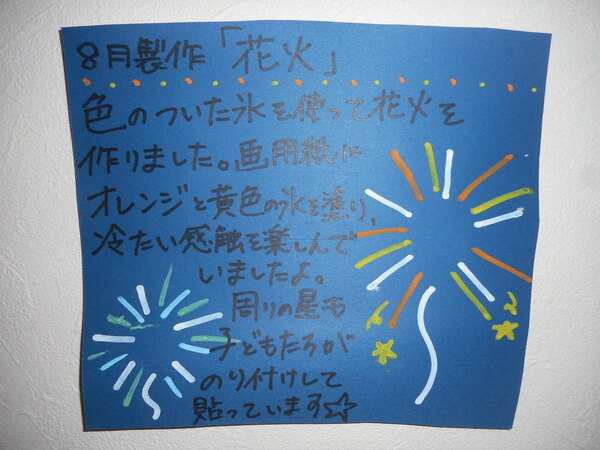 8月製作「花火」
色のついた氷を使って花火を
作りました。画用紙に
オレンジと黄色の氷を塗り、
冷たい感触を楽しんで
いましたよ。
周りの星も
子どもたちが
のり付けして
貼っています☆